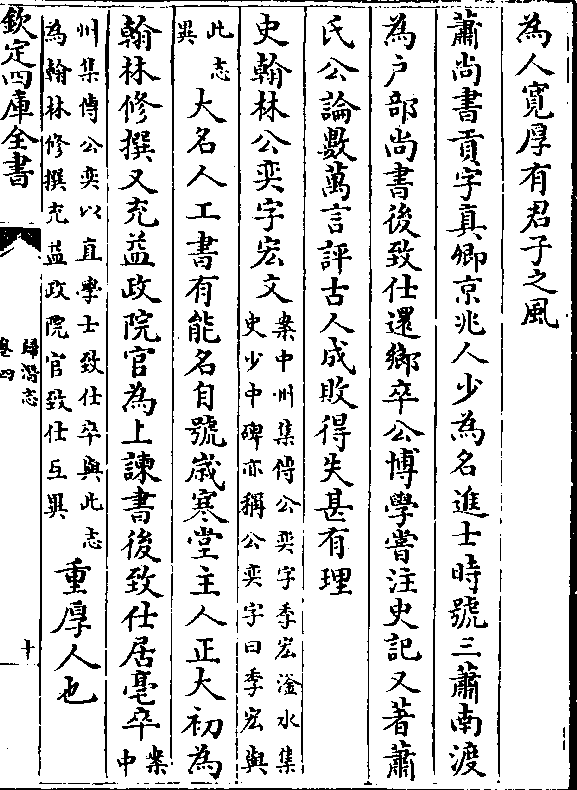 為人寬厚有君子之風
蕭尚書貢字真卿京兆人少為名進士時號三蕭南渡
為户部尚書後致仕還鄉卒公博學嘗注史記又著蕭
氏公論數萬言評古人成敗得失甚有理
史翰林公奕字宏文案中州集傳公奕字季宏滏水集
史少中碑亦稱公奕字曰季宏與
此志
異大名人工書有能名自號歲寒堂主人正大初為
翰林修撰又充益政院官為上諫書後致仕居亳卒案
中
州集傳公奕以直學士致仕卒與此志
為翰林修撰充益政院官致仕互異重厚人也
欽定四庫全書
歸潛志
卷四
十